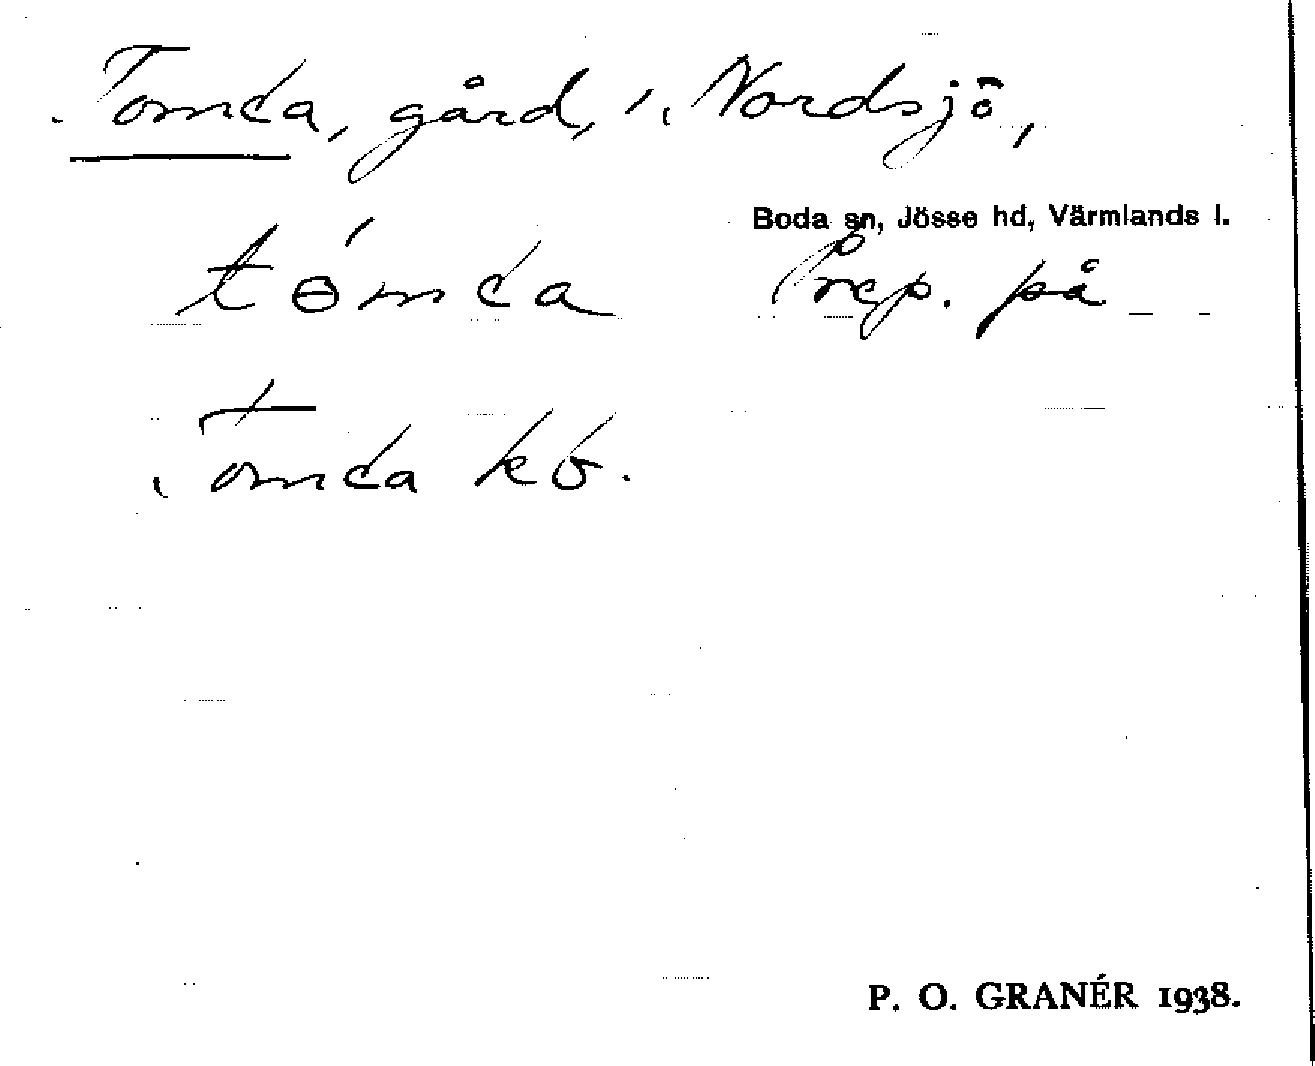 Tomta, gård, i Nordsjö,
Boda sn, Jösse hd, Värmlands l.
tɵ́mta Prep. på
Tomta kb.
P. O. GRANÉR 1938.